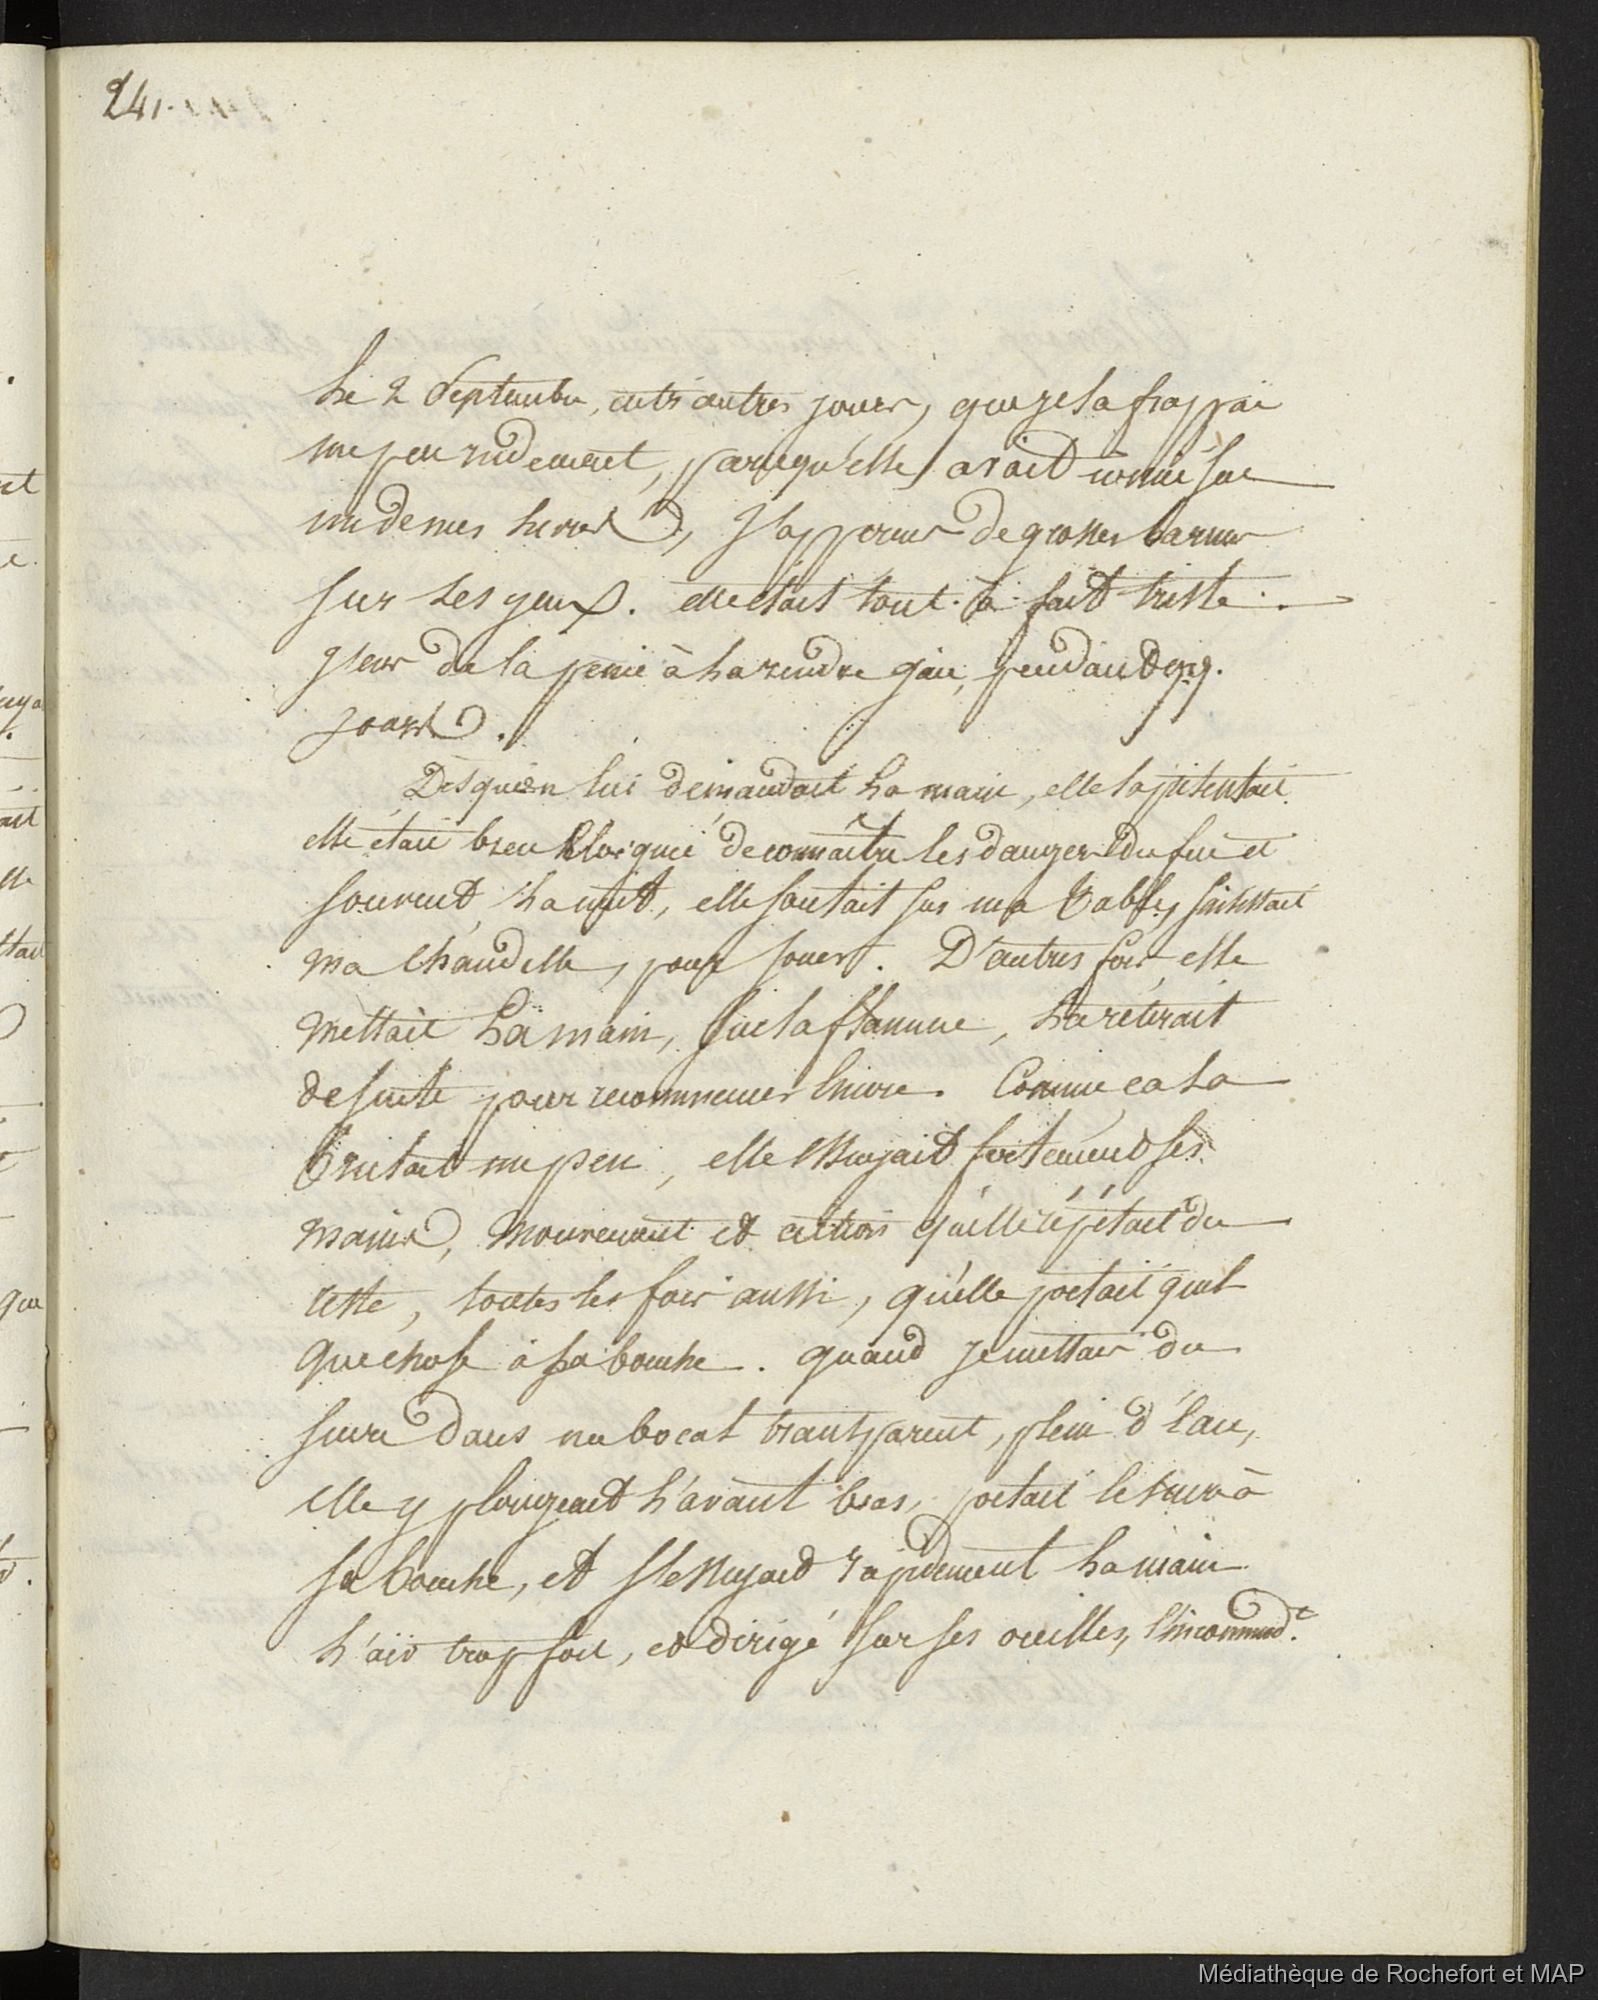 241.
Le 2 Septembre, entr'autres jours, que je la frappai
un peu rudement, parcequ'elle avait sur
un de mes livres, J'apperçus de grosses larmes
sur ses yeux. elle était tout-à-fait triste.
J'eus de la peine à la rendre gaie, pendant
jours.
Dès qu'on lui demandait la main, elle la présentait.
elle était bien éloignée de connaître les dangers du feu et
souvent la nuit, elle sautait sur ma table,
ma chandelle, pour jouer. D'autres fois elle
mettait la main, sur la flamme, la retirait
de suite pour recommencer encore. Comme ca la
brulait un peu, elle essuyait fortement ses
mains, mouvement et action qu'elle répétait du
reste, toutes les fois aussi, qu'elle portait quel
que chose à sa bouche. quand je mettais du
sucre dans un bocal transparent, plein d'eau,
elle y plongeait l'avant bras, portait le sucre à
sa bouche, et s'essuyait rapidement la main
l'air trop fort, et dirigé sur ses oreilles, l'incommodt.
Médiathèque de Rochefort et MAP